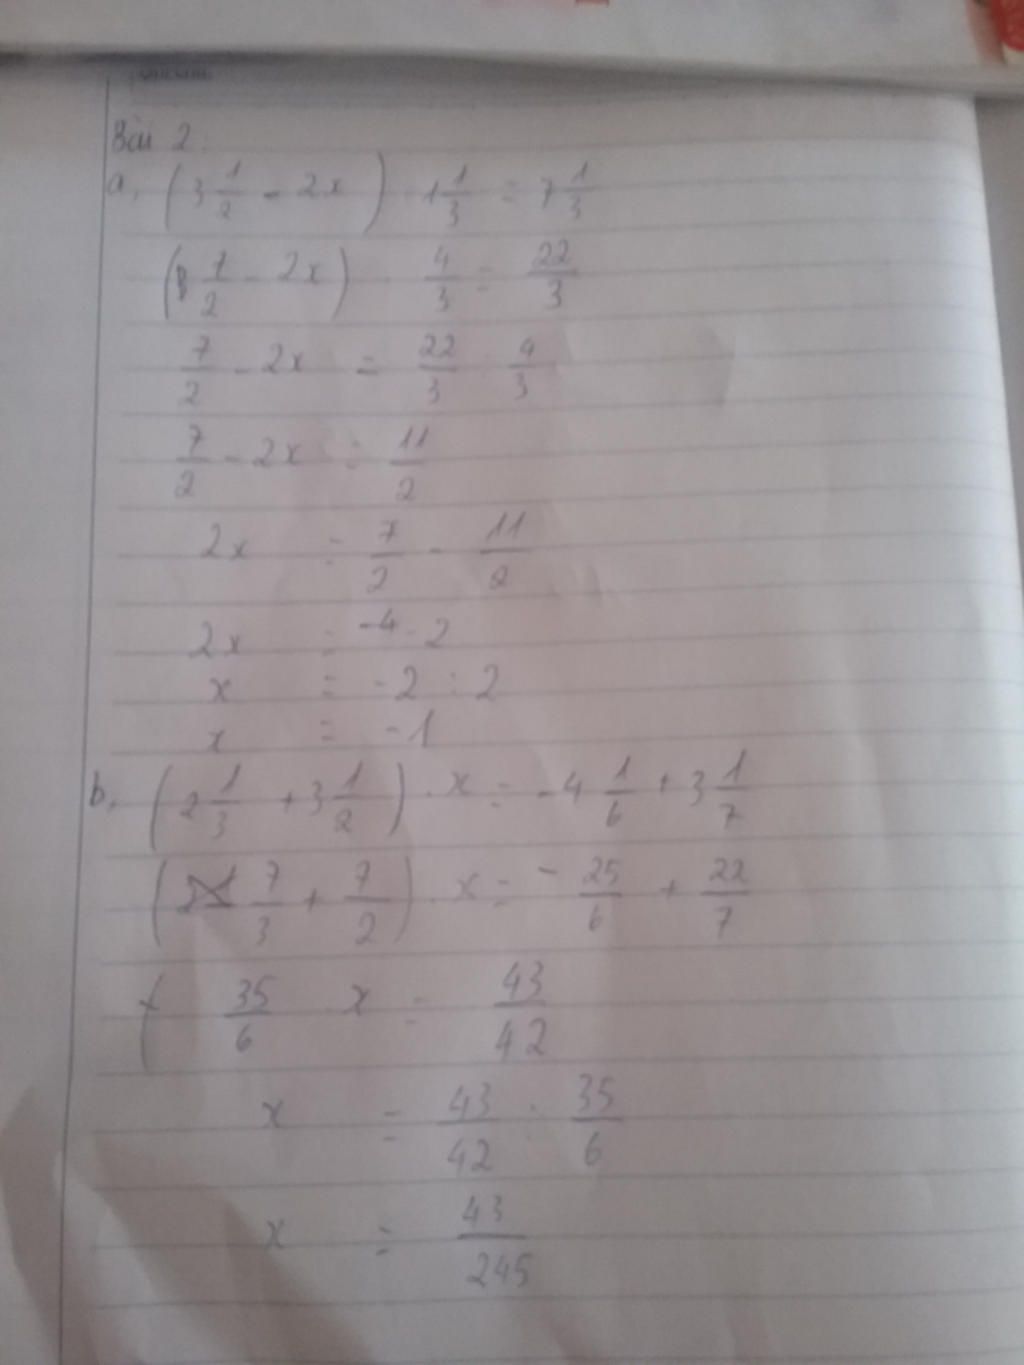 Bài 2:
a, (3 1/2 - 2x) . 1 1/3 = 7 1/3
(7/2 - 2x) . 4/3 = 22/3
7/2 - 2x = 22/3 : 4/3
7/2 - 2x = 11/2
2x = 7/2 - 11/2
2x = -4 2
x = -2 : 2
x = -1
b, (2 1/3 + 3 1/2) . x = -4 1/6 + 3 1/7
(7/3 + 7/2) . x = -25/6 + 22/7
35/6 . x = 43/42
x = 43/42 : 35/6
x = 43/245